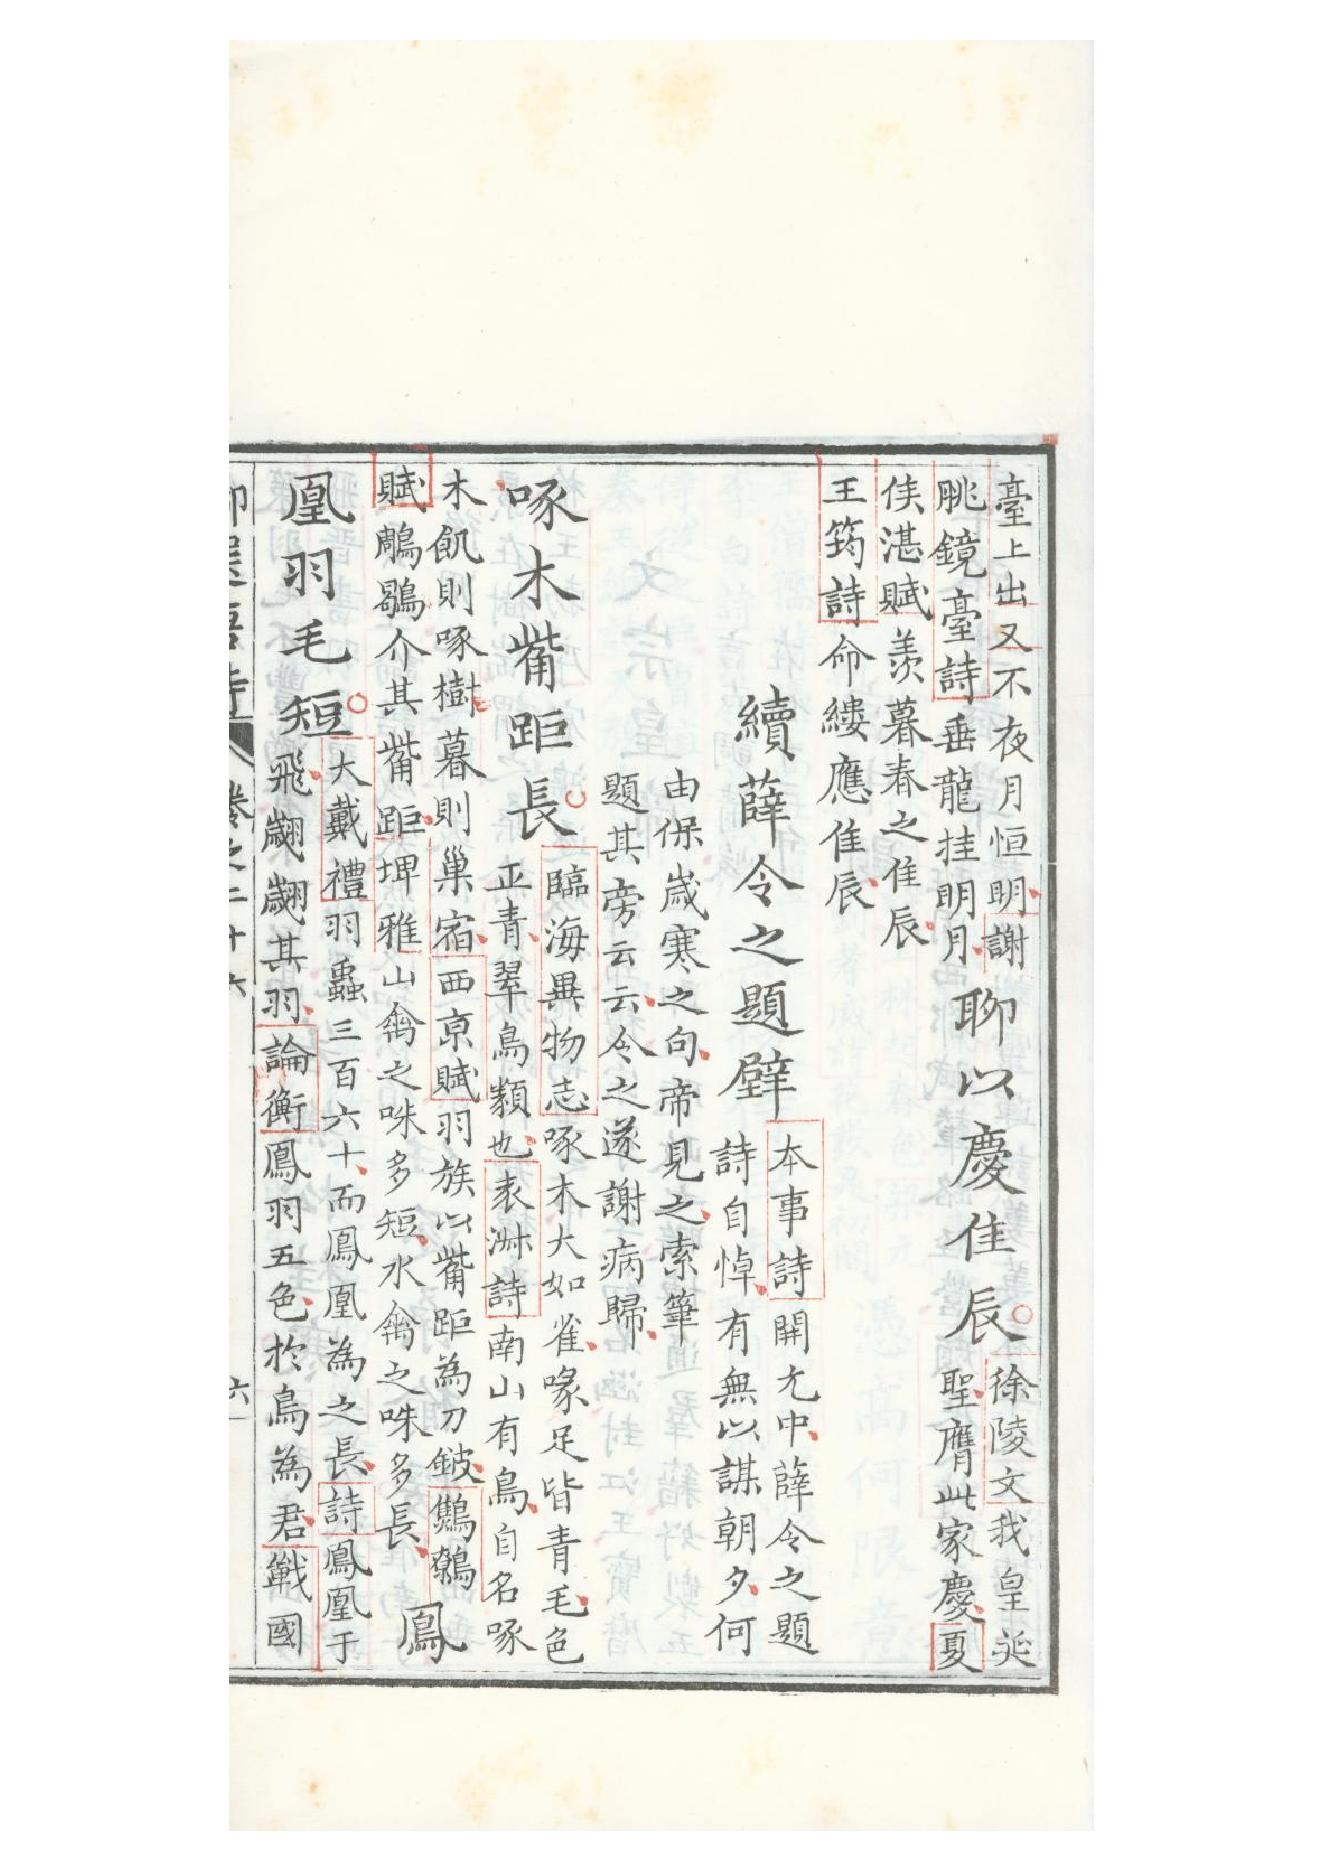 臺上出又不夜月恒明謝
朓鏡臺詩垂龍挂明月
聊以慶佳辰
徐陵文我皇誕
聖膺此家慶夏
侯湛賦羨暮春之佳辰
王筠詩命縷應佳辰
續薛令之題壁
本事詩開元中薛令之題
詩自悼有無以謀朝夕何
由保歲寒之句帝見之索筆
題其旁云云令之遂謝病歸
啄木觜距長
臨海異物志啄木大如雀喙足皆青毛色
正青翠鳥類也袁淑詩南山有鳥自名啄
木飢則啄樹暮則巢宿西京賦羽族以觜距為刀鈹鷦鷯
賦鵰鶡介其觜距埤雅山禽之咮多短水禽之咮多長
鳳
凰羽毛短
大戴禮羽蟲三百六十而鳳凰為之長詩鳳凰于
飛翽翽其羽論衡鳳羽五色於鳥為君戰國
卷之二十六
六